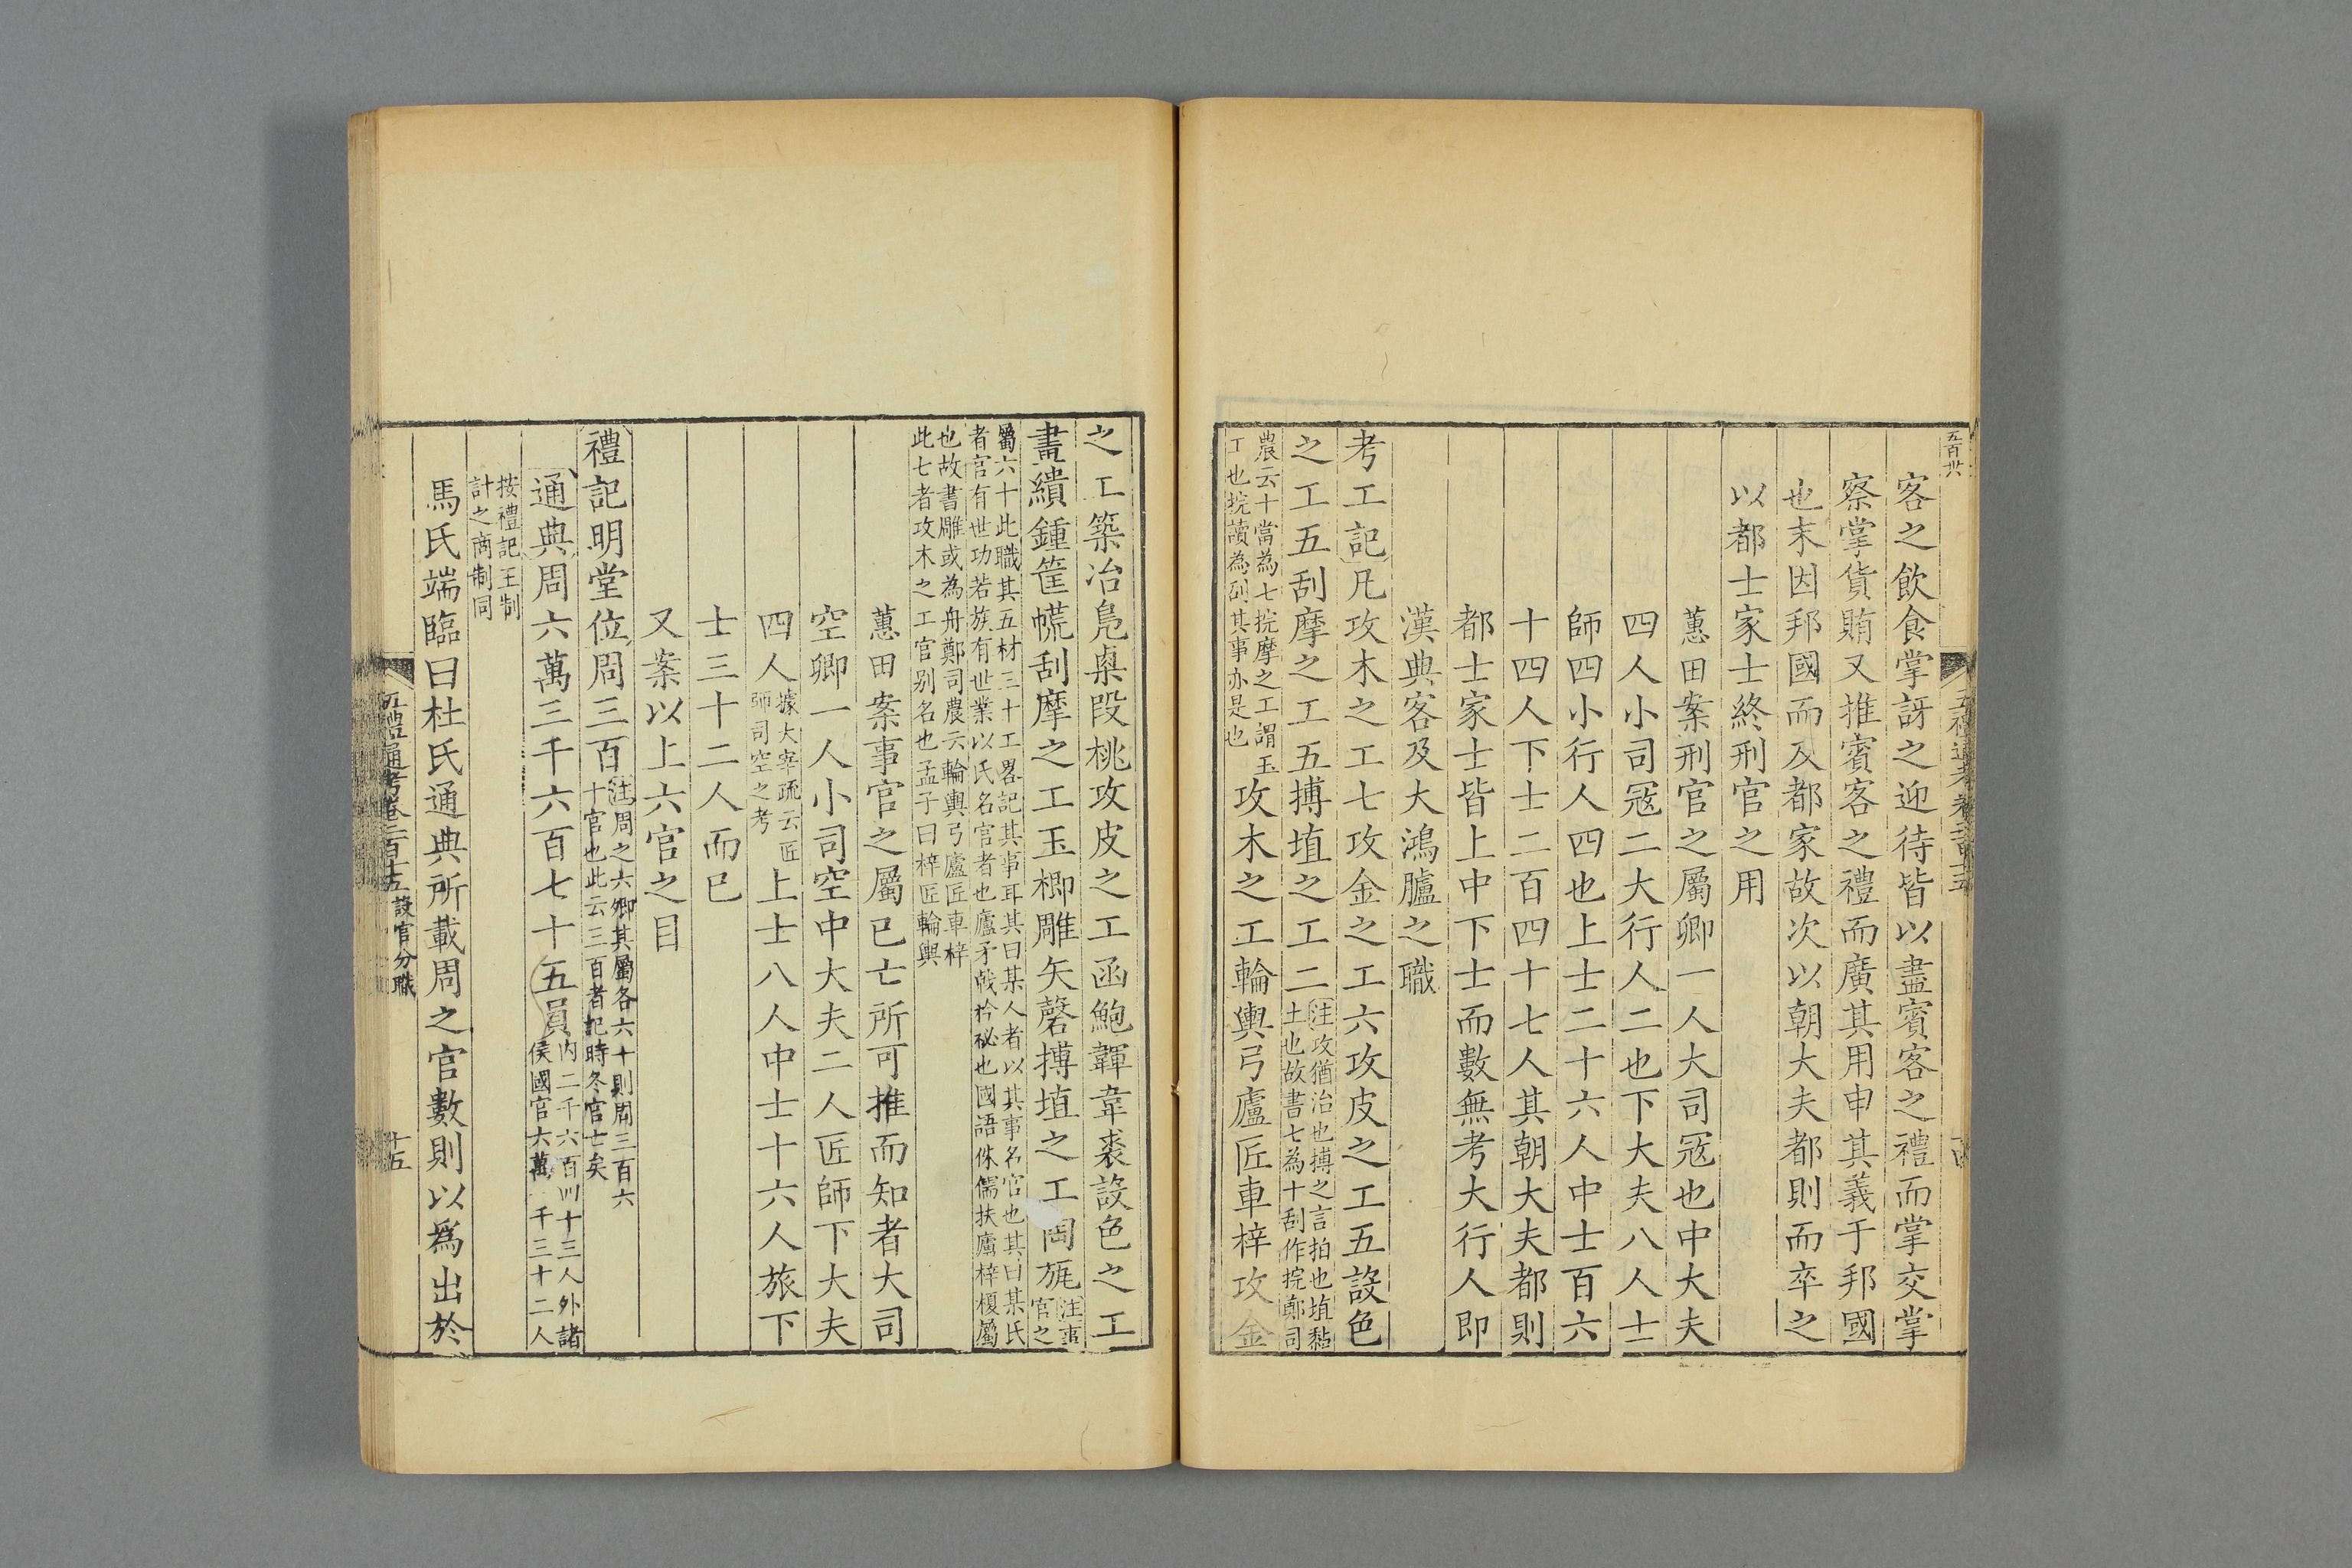 客之飲食掌訝之迎待皆以盡賓客之禮而掌交掌
察掌貨賄又推賓客之禮而廣其用申其義于邦國
也末因邦國而及都家故次以朝大夫都則而卒之
以都士家士終刑官之用
蕙田案刑官之屬卿一人大司冦也中大夫
四人小司冦二大行人二也下大夫八人士
師四小行人四也上士二十六人中士百六
十四人下士二百四十七人其朝大夫都則
都士家士皆上中下士而數無考大行人即
漢典客及大鴻臚之職
考工記凡攻木之工七攻金之工六攻皮之工五設色
之工五刮摩之工五搏埴之工二
注攻猶治也搏之言拍也埴黏
土也故書七為十刮作捖鄭司
農云十當為七捖摩之工謂玉
工也捖讀為刮其事亦是也
攻木之工輪輿弓廬匠車梓攻金
之工築冶鳧㮚段桃攻皮之工函鮑韗韋裘設色之工
畫繢鍾筐㡛刮摩之工玉楖雕矢磬搏埴之工陶瓬
注事
官之
屬六十此職其五材三十工畧記其事耳其曰某人者以其事名官也其曰某氏
者官有世功若族有世業以氏名官者也廬矛戟矜柲也國語侏儒扶廬梓榎屬
也故書雕或為舟鄭司農云輪輿弓廬匠車梓
此七者攻木之工官别名也孟子曰梓匠輪輿
蕙田案事官之屬已亡所可推而知者大司
空卿一人小司空中大夫二人匠師下大夫
四人
據大宰疏云匠
師司空之考
上士八人中士十六人旅下
士三十二人而已
又案以上六官之目
禮記明堂位周三百
注周之六卿其屬各六十則周三百六
十官也此云三百者記時冬官亡矣
通典周六萬三千六百七十五員
内二千六百四十三人外諸
侯國官六萬一千三十二人
按禮記王制
計之商制同
馬氏端臨曰杜氏通典所載周之官數則以為出於
五禮通考卷二百十五
設官分職
十五